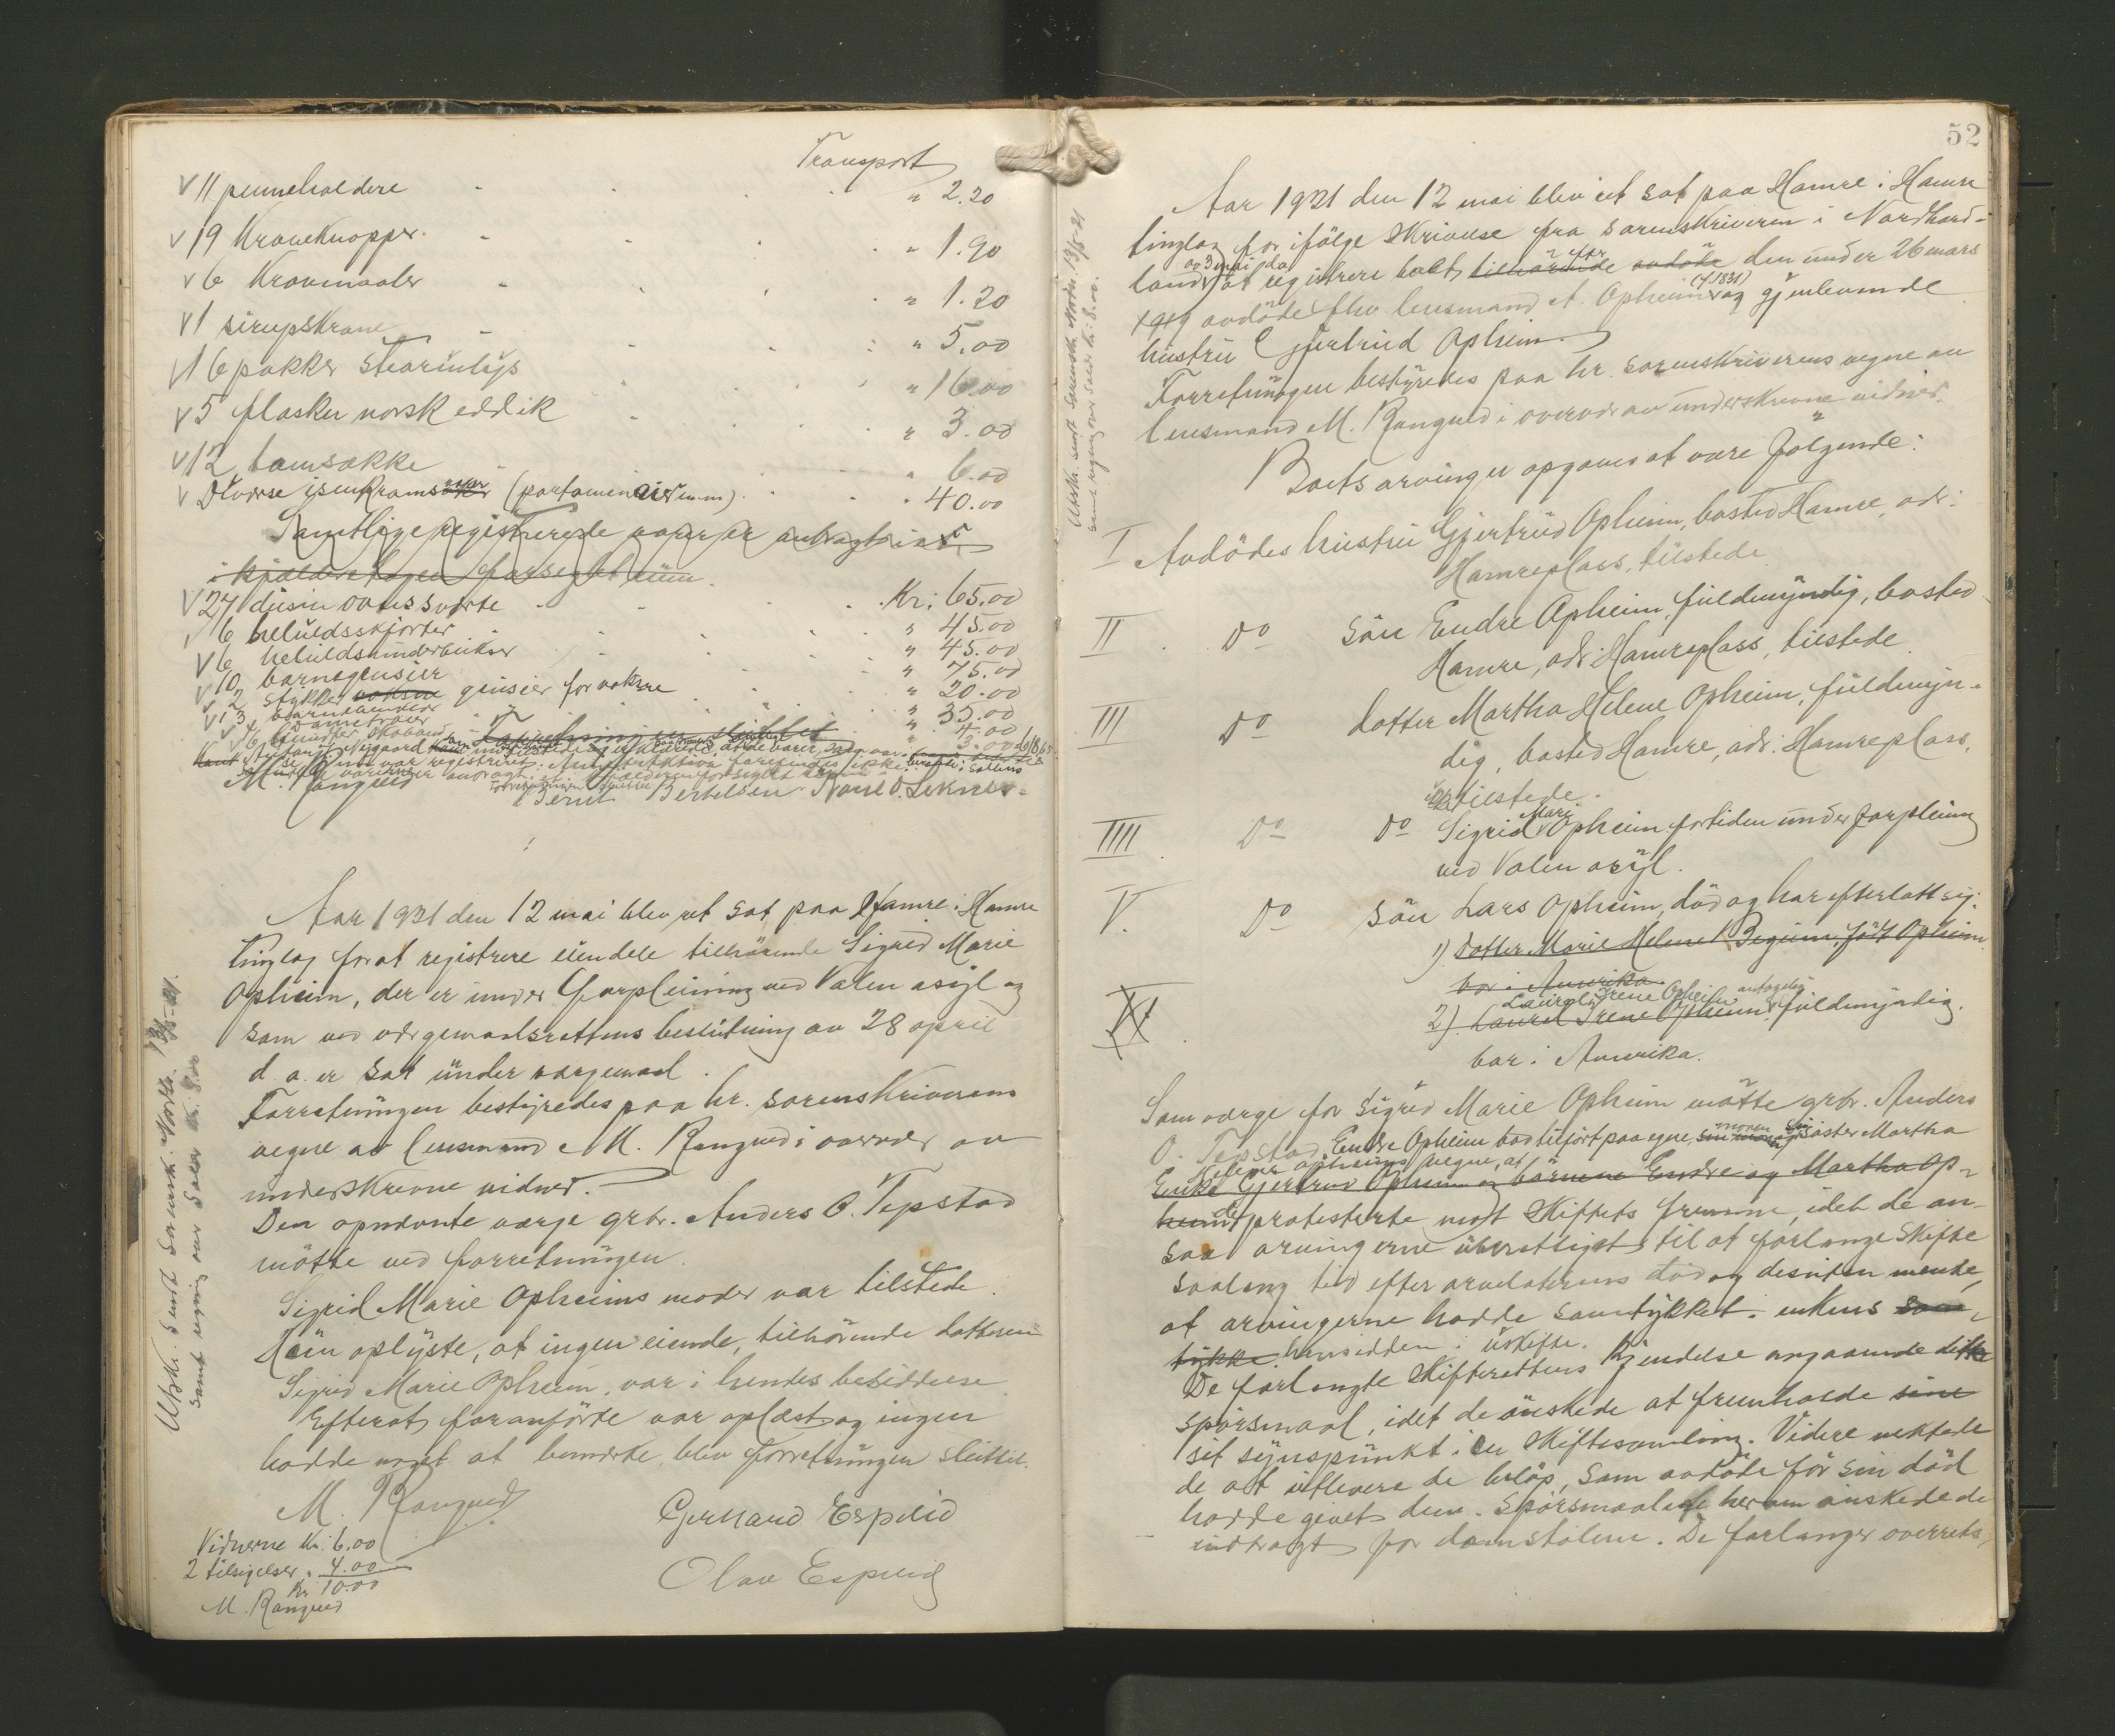 Transport
11 penneholdere " 2.20
19 Kraveknapper " 1.90
6 Kravmaaler " 1.20
1 sirupskrane " 5.00
16 pakker stearinlys " 16.00
5 flasker norsk eddik " 3.00
12 tomsække " 6.00
Diverse isenkramsaker (portemonaier m.m.) " 40.00
Samtlige registrerede varer er anbragt
i kjælderetagen forseglet rum.
27 dusin ovnssverte Kr: 65.00
6 heluldsskjorter " 45.00
6 heluldsunderbukser " 45.00
10 barnegensier " 75.00
2 stykker voksne gensier for voksne " 20.00
" 35.00
" 4.00
" 3.00
Forretningen sluttet
M. Rangued
Bernt Bertelsen
Aar 1921 den 12 mai blev ret sat paa Hamre i Hamre
tinglag for at registrere eiendele tilhørende Sigrid Marie
Opheim, der er under forpleining ved Valen asyl og
som ved vergemaalsrettens beslutning av 28 april
d. a. er sat under vergemaal.
Forretningen bestyredes paa hr. sorenskriverens
vegne av lensmand M. Rangued i overvær av
underskrevne vidner.
Den opnævnte verge grbr. Anders O. Tepstad
møtte ved forretningen.
Sigrid Marie Opheims moder var tilstede.
Hun oplyste, at ingen eiende, tilhørende datteren
Sigrid Marie Opheim, var i hendes besiddelse.
Efterat foranførte var oplæst og ingen
hadde noget at bemerke, blev forretningen sluttet.
M. Rangued
Gerhard Espelid
Olav Espelid
Vidnerne Kr: 6.00
2 tilsigelser " 4.00
Kr 10.00
M. Rangued
Utskr. sendt Sorensk. Nordh. 13/5-21.
samt regning over Saler kr: 8.00
52
Utskr. sendt Sorensk. Nordh. 13/5-21
samt regning over Saler kr: 8.00.
Aar 1921 den 12 mai blev ret sat paa Hamre i Hamre
tinglag for ifølge skrivelse fra sorenskriveren i Nordhord-
land av 3 mai d.a. at registrere boet tilhørende avdøde efter den under 26 mars
1919 avdøde fhv lensmand A. Opheim (f. 1831) og gjenlevende
hustru Gjertrud Opheim.
Forretningen bestyredes paa hr. sorenskriverens vegne av
lensmand M. Rangued i overvær av underskrevne vidner.
Boets arvinger opgaves at være følgende:
I Avdødes hustru Gjertrud Opheim, bosted Hamre, adr:
Hamreplass, tilstede.
II Do søn Endre Opheim, fuldmyndig, bosted
Hamre, adr: Hamreplass, tilstede.
III Do datter Martha Helene Opheim, fuldmyn-
dig, bosted Hamre, adr: Hamreplass,
ikke tilstede.
IIII Do Do Sigrid Marie Opheim fortiden under forpleining
ved Valen asyl.
V. Do søn Lars Opheim, død og har efterlatt sig:
1) Datter Marie Helene Begum, født Opheim
bor i Amerika.
VI 2) Laurel Irene Opheim Laurel Irene Opheim antagelig fuldmyndig.
bor i Amerika.
Som verge for Sigrid Marie Opheim møtte grbr. Anders
O. Tepstad. Endre Opheim bad tilført paa egne, sin moren og sin søster Martha
Helene Opheims vegne, at
Enke Gjertrud Opheim og børnene Endre og Martha Op-
heim de protesterte mot skiftets fremme, idet de an-
saa arvingerne uberettiget til at forlange skifte
saa lang tid efter arveladerens død og desuten mente,
at arvingerne hadde samtykket i enkens sam-
tykke hensidden i uskifte.
De forlangte skifterettens kjendelse angaaende dette
spørsmaal, idet de ønskede at fremholde sine
sit synspunkt i en skiftesamling. Videre nektede
de at utlevere de beløp, som avdøde før sin død
hadde givet dem. Spørsmaalet herom ønskede de
indbragt for domstolene. De forlanger overrets-